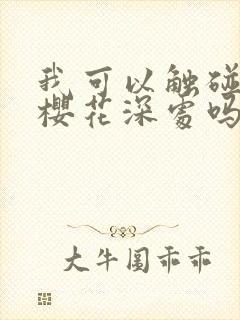 我可以触碰
樱花深处吗
大牛围乖乖